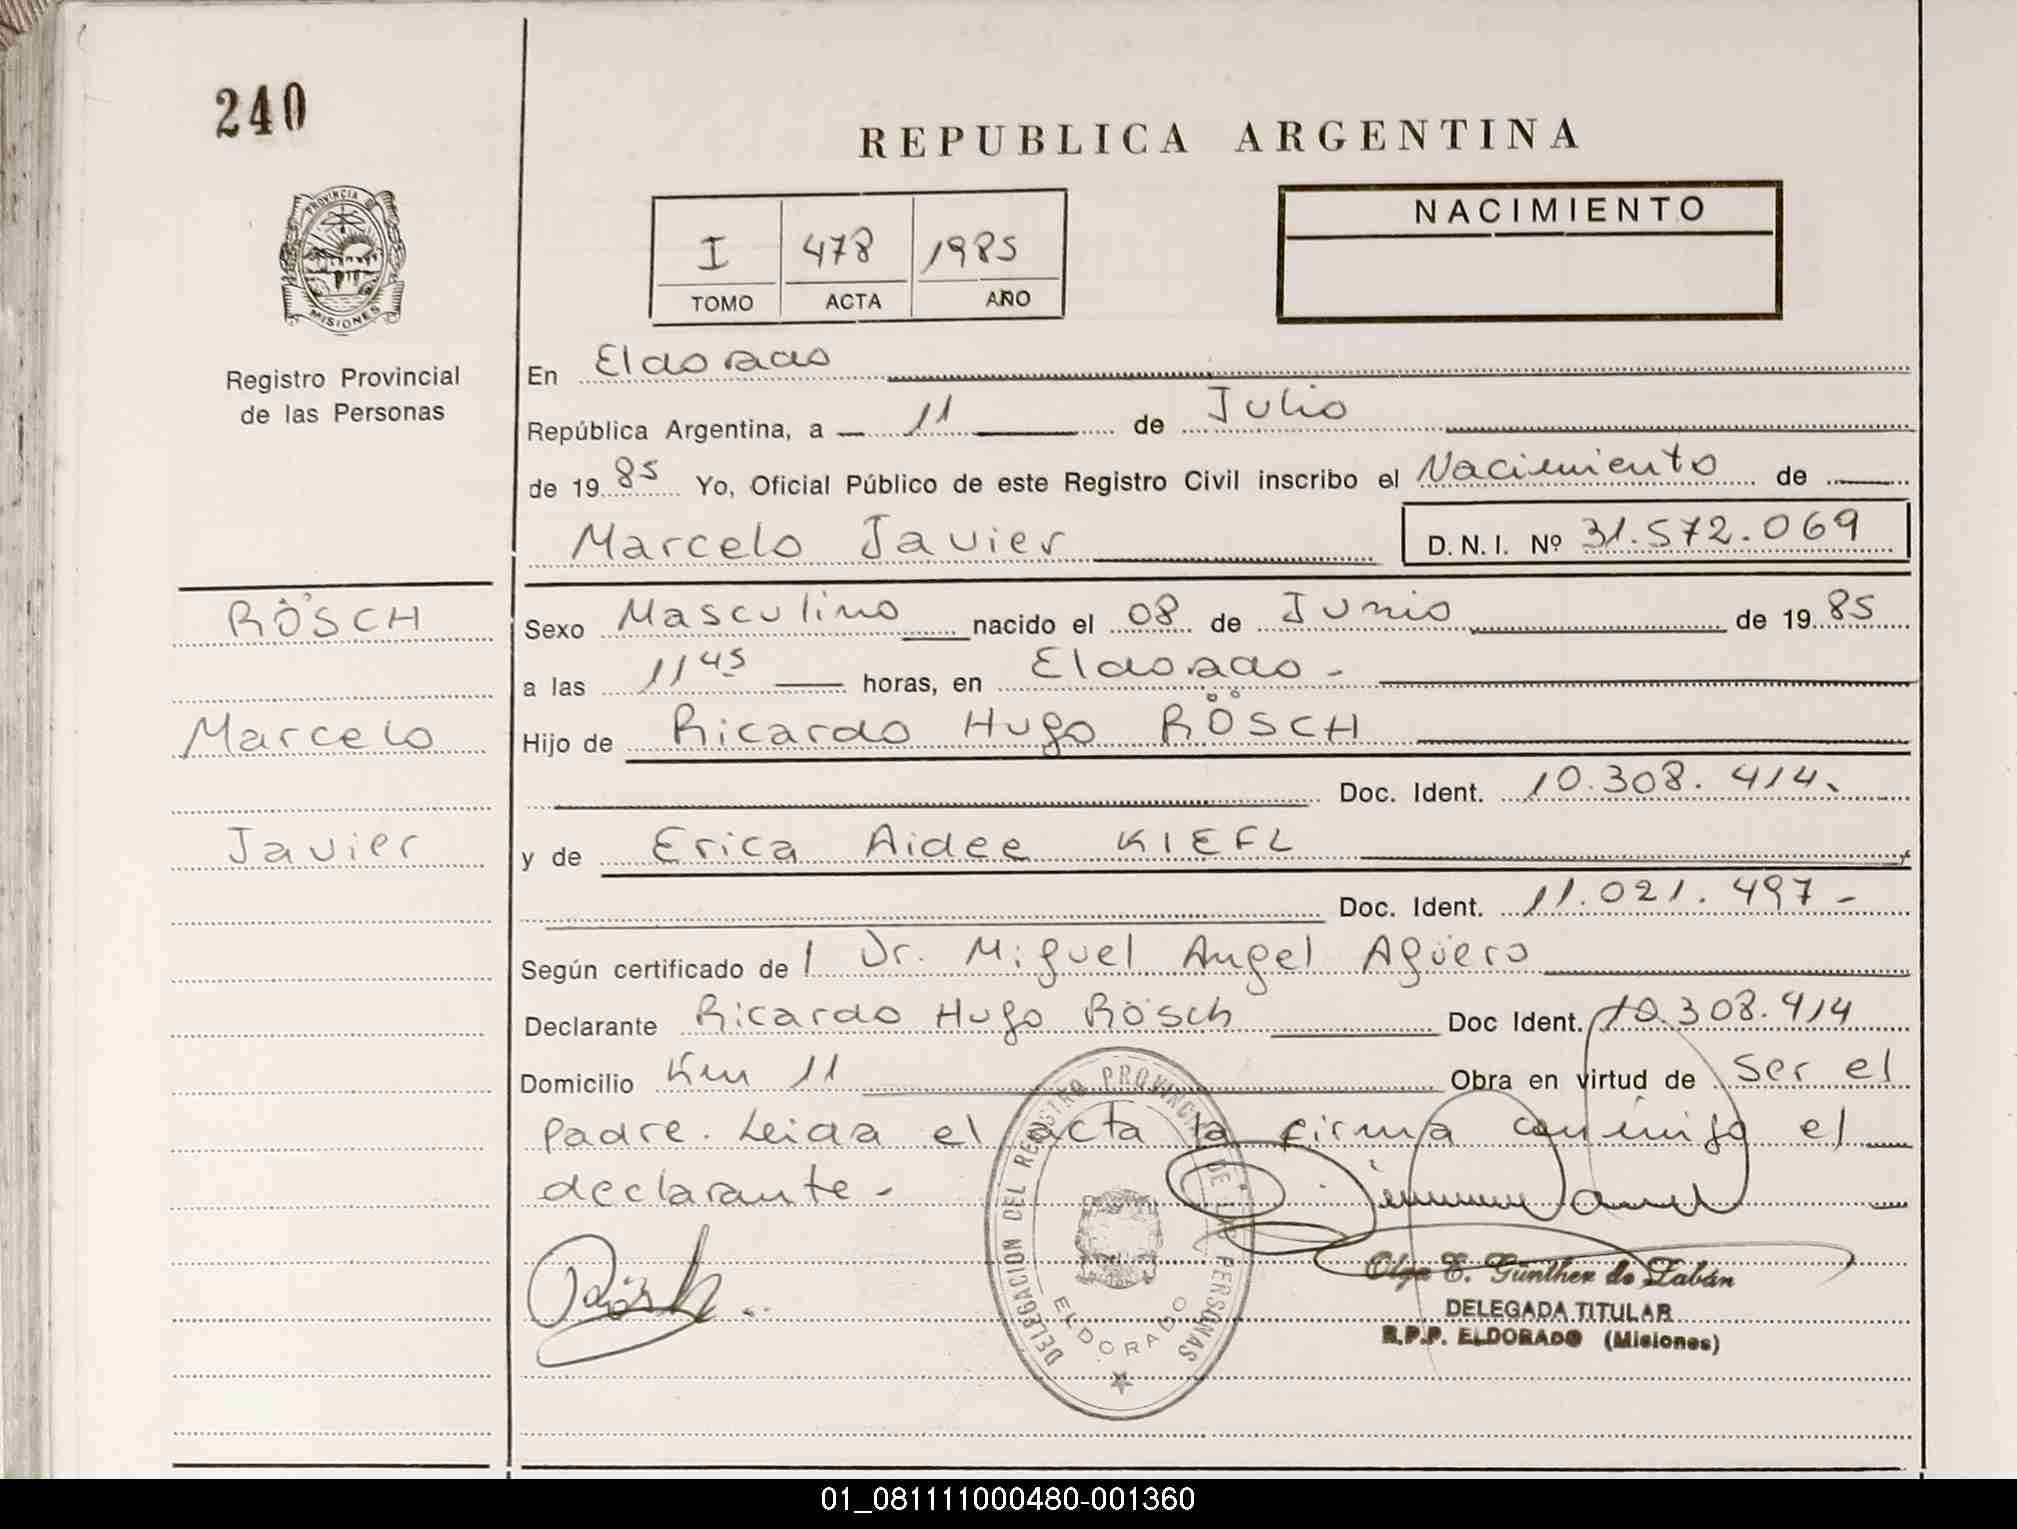 240
REPUBLICA ARGENTINA
PROVINCIA DE
MISIONES
Registro Provincial
de las Personas
I 478 1985
TOMO ACTA AÑO
NACIMIENTO
En Eldorado
República Argentina, a 11 de Julio
de 1985 Yo, Oficial Público de este Registro Civil inscribo el Nacimiento de
Marcelo Javier D.N.I. Nº 31.572.069
RÖSCH
Marcelo
Javier
Sexo Masculino nacido el 08 de Junio de 1985
a las 11 45 horas, en Eldorado -
Hijo de Ricardo Hugo RÖSCH
Doc. Ident. 10.308.414.
y de Erica Aidee KIEFL
Doc. Ident. 11.021.497 -
Según certificado de Dr. Miguel Angel Agüero
Declarante Ricardo Hugo Rösch Doc Ident. 10.308.414
Domicilio Km 11 Obra en virtud de ser el
padre. Leida el acta la firma conmigo el
declarante -
Rösch
DELEGACION DEL REGISTRO PROVINCIAL DE LAS PERSONAS
ELDORADO
Olga E. Günther de Zabán
DELEGADA TITULAR
R.P.P. ELDORADO (Misiones)
01_081111000480-001360